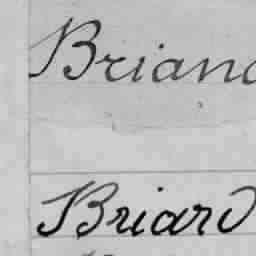 Briand
Briard